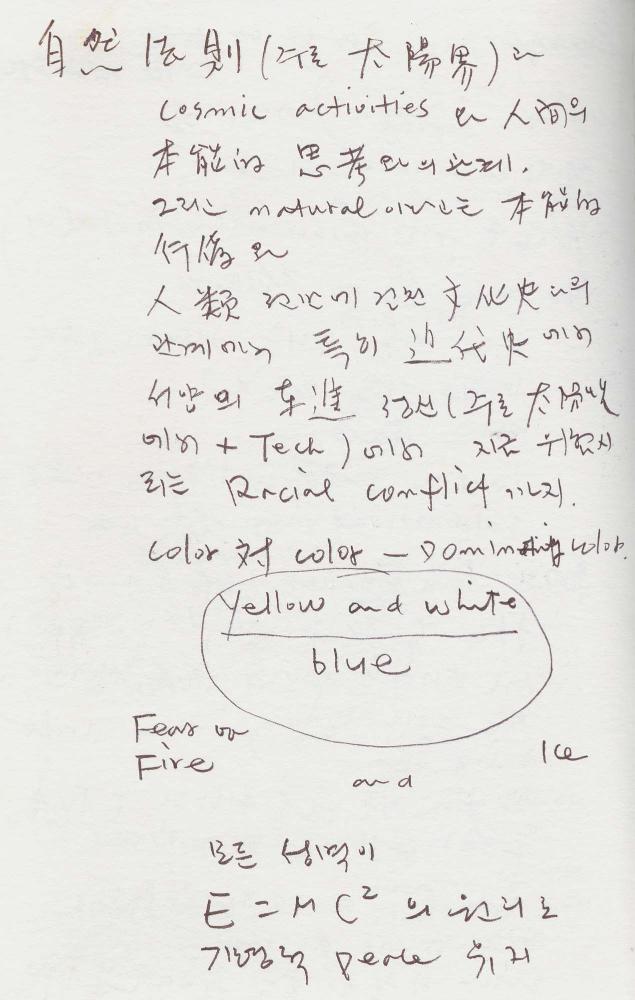 自然 法則 (주로 太陽界)と
cosmic activities 와 人間의
本能的 思考 와의 관계.
그리고 natural 이라는 本能的
行爲 와
人類 전반에 걸친 文化史と의
관계에서 특히 近代史에서
서양의 東進 정신 (주로 太陽빛
에서 + Tech) 에서 지금
Racial conflict 까지.
color 対 color – Dominating color.
yellow and white
blue
Fear
Fire
Ice
and
모든 이
E = M C² 의 원리로
peace 유지